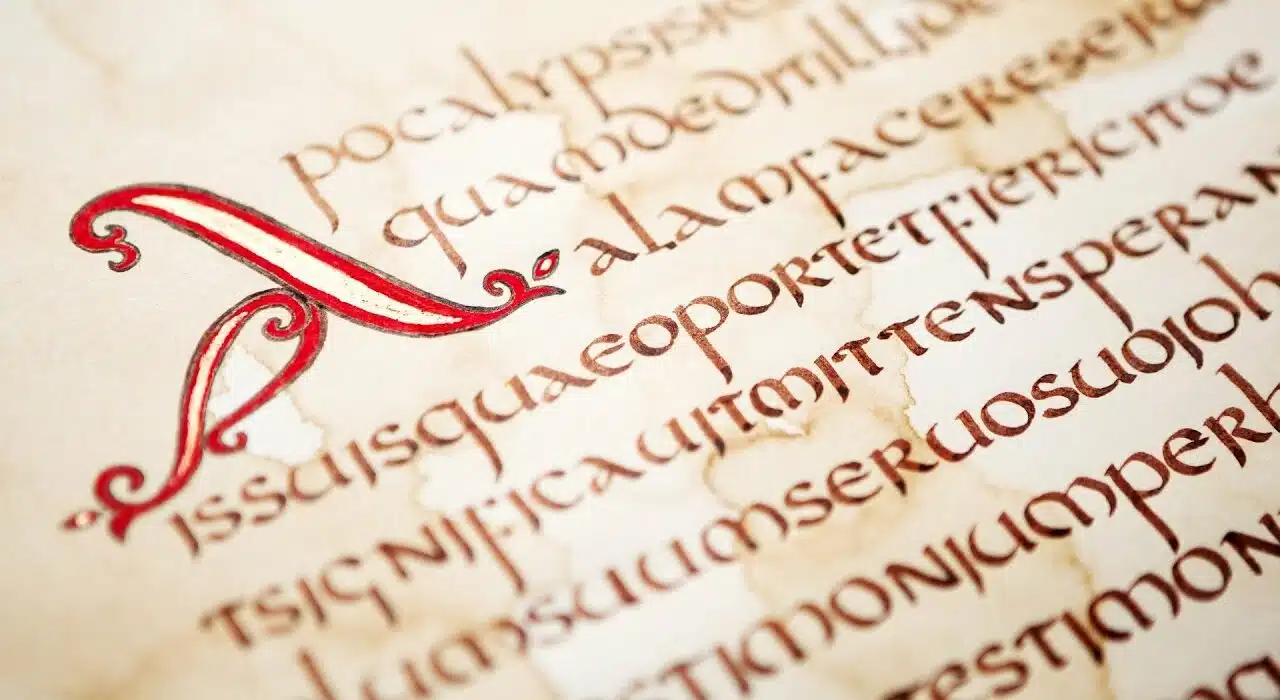 Apocalypsisie
quamdeditillide
alamfacereseru
issuisquaeoportetfiericitoe
tsignificauitmittensperan
lumsuumseruosuoioh
stimoniumperh
estimon